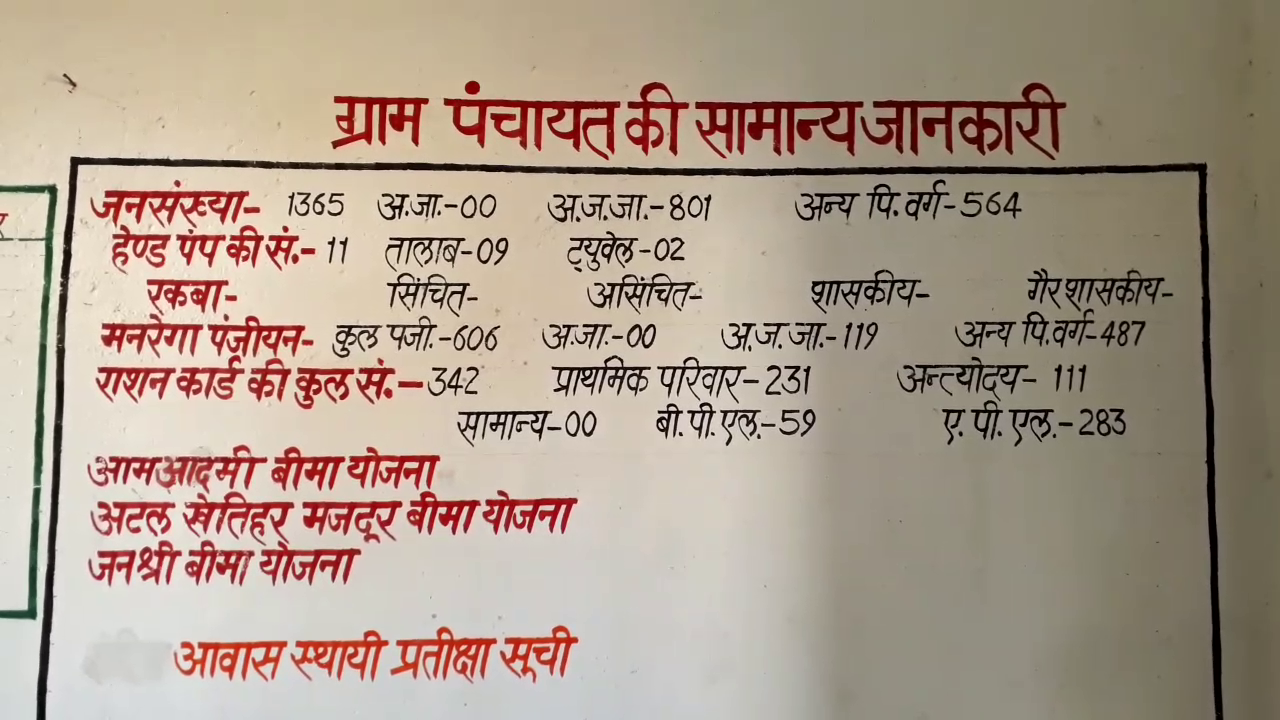 ग्राम पंचायत की सामान्य जानकारी
जनसंख्या- 1365 अ.जा.-00 अ.ज.जा.-801 अन्य पि.वर्ग-564
हेण्ड पंप की सं.- 11 तालाब-09 ट्युवेल-02
रकबा- सिंचित- असिंचित- शासकीय- गैरशासकीय-
मनरेगा पंजीयन- कुल पजी.-606 अ.जा.-00 अ.ज.जा.-119 अन्य पि.वर्ग-487
राशन कार्ड की कुल सं.-342 प्राथमिक परिवार-231 अन्त्योदय- 111
सामान्य-00 बी.पी.एल.-59 ए.पी.एल.-283
आमआदमी बीमा योजना
अटल खेतिहर मजदूर बीमा योजना
जनश्री बीमा योजना
आवास स्थायी प्रतीक्षा सूची